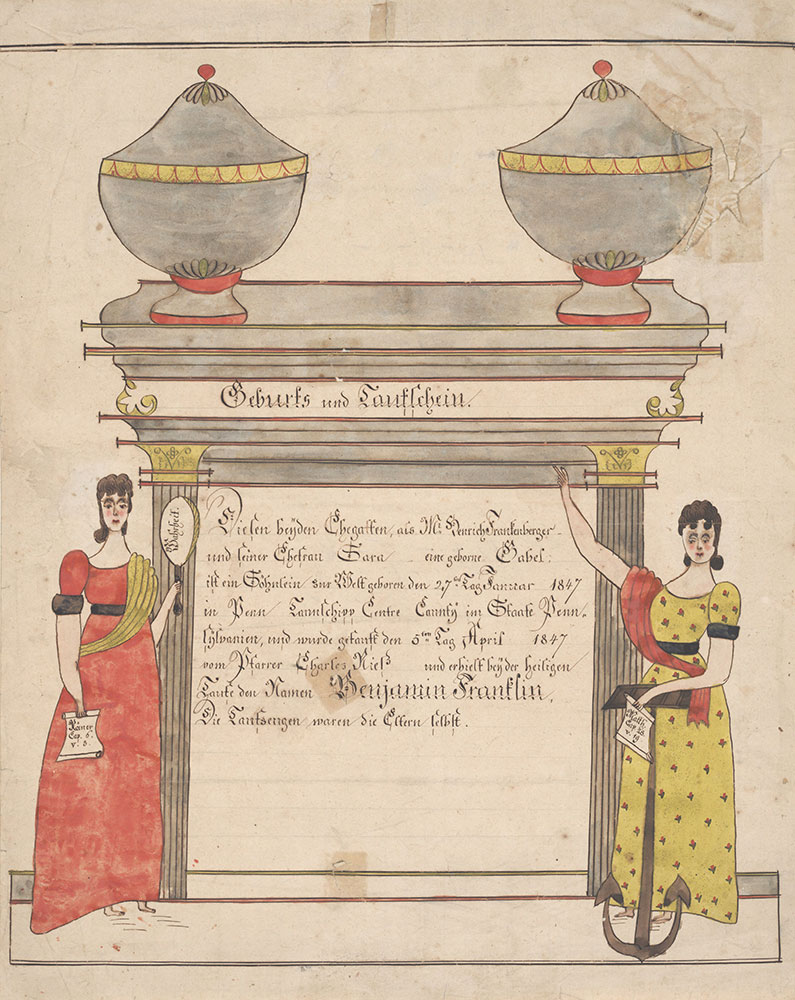 Geburts und Taufschein.
Wahrheit.
Diesen beyden Ehegatten, als Mr Henrich Frankenberger
und seiner Ehefrau Sara eine geborne Gabel:
ist ein Söhnlein zur Welt geboren den 27ten Tag Januar 1847
in Penn Taunschipp Centre Caunty im Staate Penn-
sylvanien, und wurde getauft den 5ten Tag April 1847
vom Pfarrer Charles und erhielt bey der heiligen
Taufe den Namen Benjamin Franklin.
Die Taufzeugen waren die Eltern selbst.
Römer
Cap. 6.
v. 3.
Matth.
Cap. 28.
v. 19